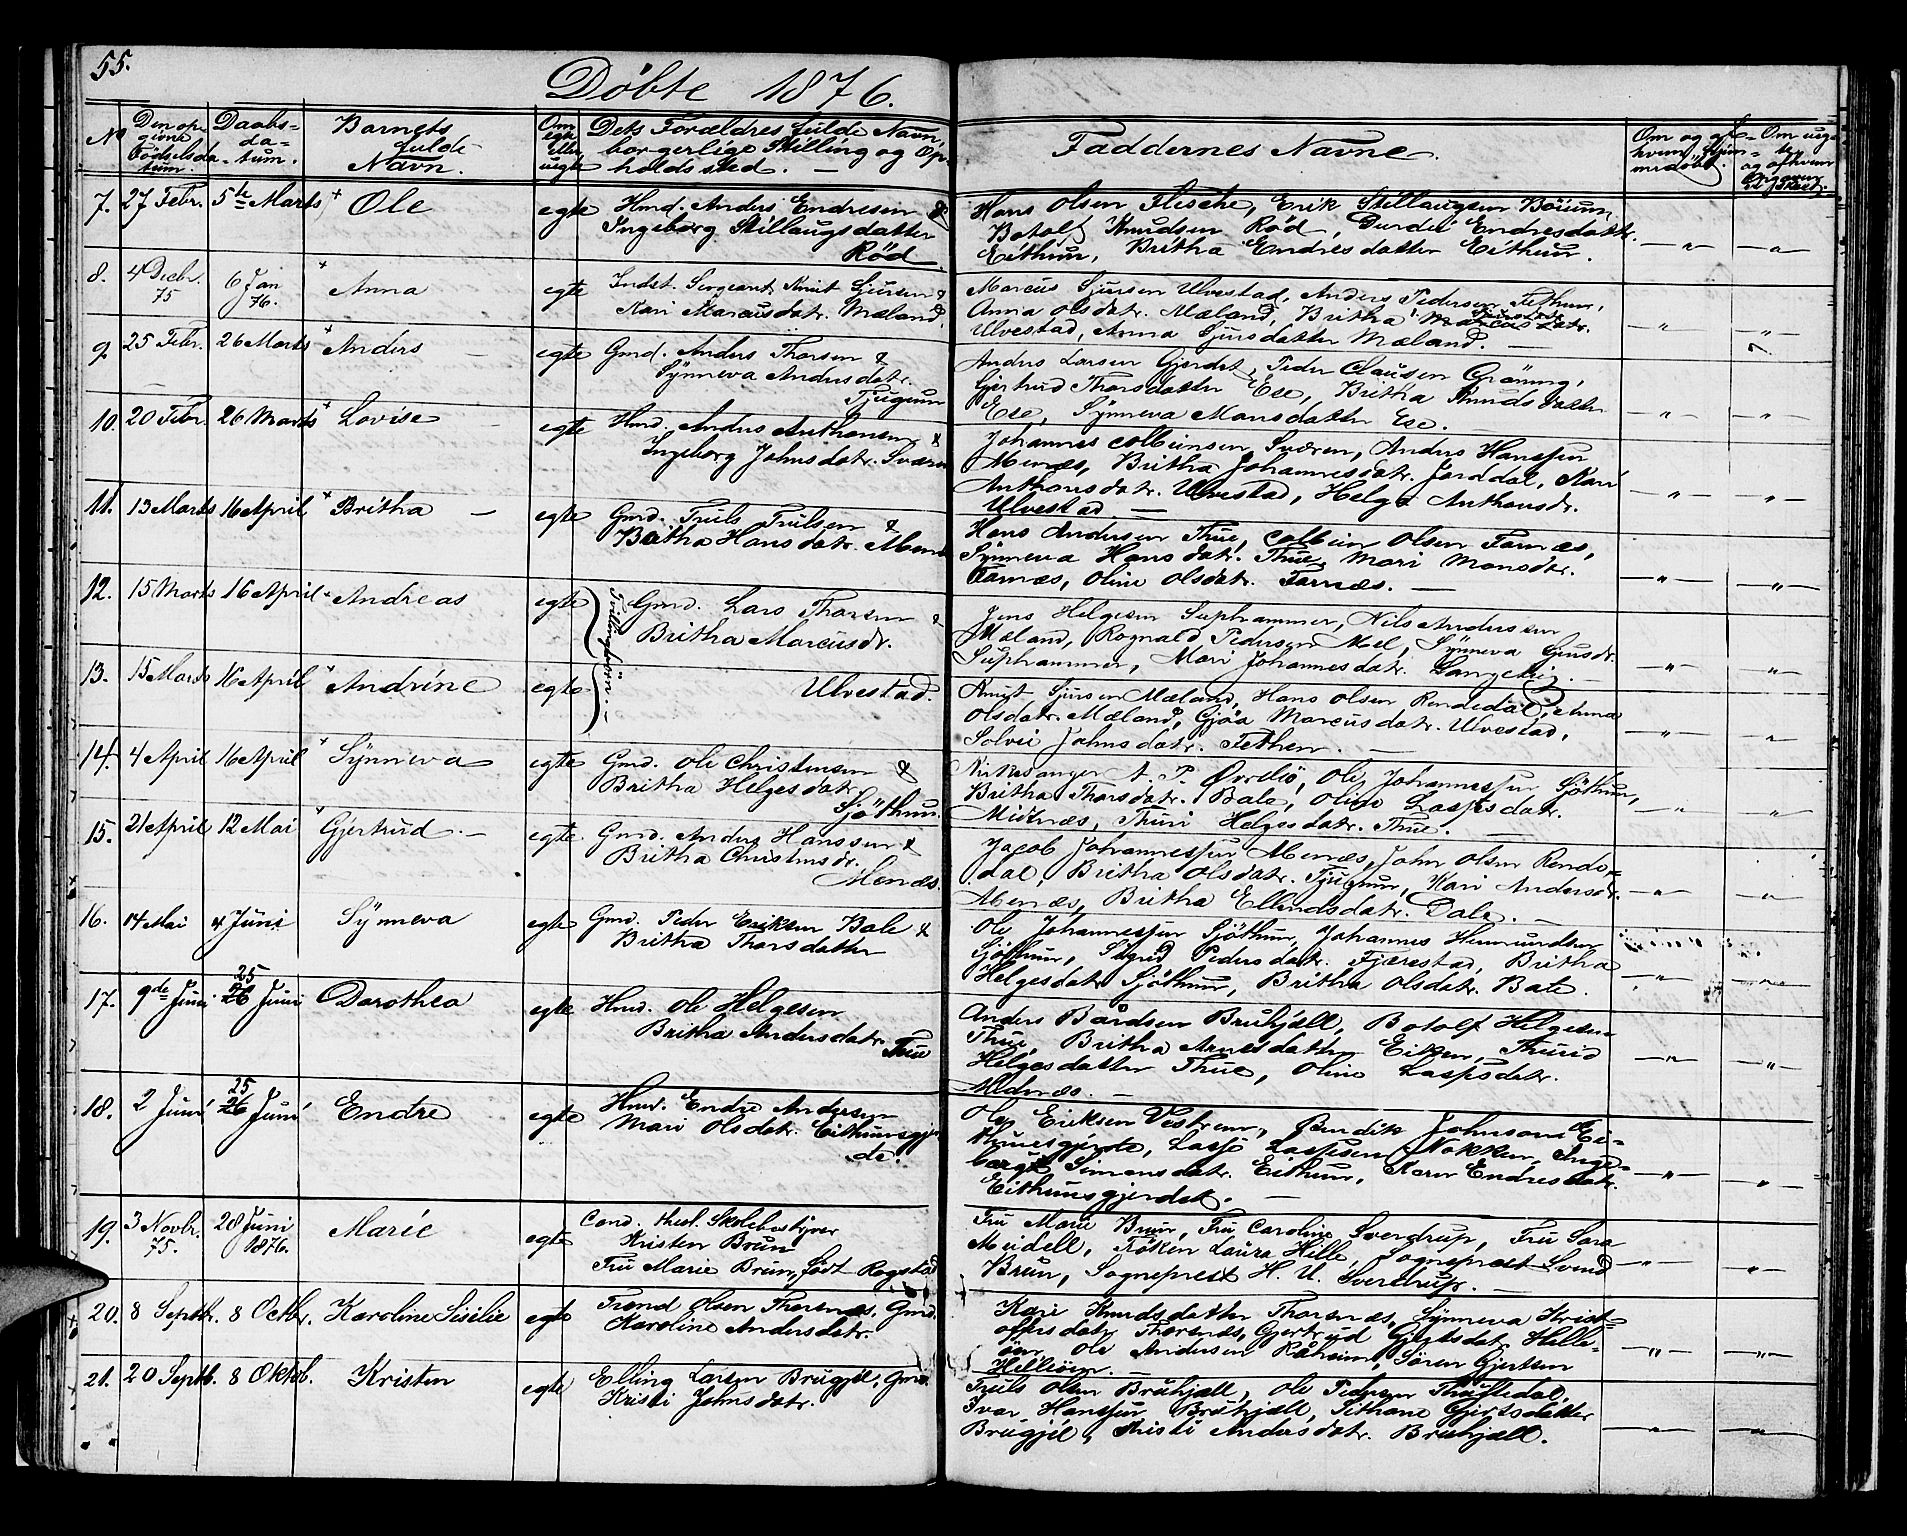 55.
Döbte 1876.
No
Den op-
givne
Födselsda-
tum.
Daabs-
da-
tum.
Barnets
fulde
Navn.
Om
egte
eller
uegte
Dets Forældres fulde Navn,
borgerlige Stilling og Op-
holdssted. —
Faddernes Navne.
7. 27 Febr. 5te Marts + Ole egte Hmd. Anders Endresen &
Ingeborg Stillaugsdatter
Röd
Hans Olsen Flesche, Erik Stillaugsen Böium,
Botolf Knudsen Röd, Durdei Endresdattr.
Eithun, Britha Endresdatter Eithun.
8. 4 Decbr. 75 6 Jan 76. + Anna egte Indst. Sergeant Knut Sjursen &
Kari Marcusdatr. Mæland.
Marcus Sjursen Ulvestad, Anders Pedersen Fethun,
Anna Olsdatr. Mæland, Britha Marcusdatr.
Ulvestad, Anna Sjursdatter Mæland. —
9. 25 Febr. 26 Marts + Anders — egte Gmd. Anders Thorsen &
Synneva Andersdatr.
Tjugum
Anders Larsen Gjerdet, Peder Clausen Gröning,
Gjertrud Thorsdatter Ese, Britha Knudsdatter
Ese, Synneva Monsdatter Ese. —
10. 20 Febr. 26 Marts + Lovise — egte Hmd. Anders Anthonsen &
Ingeborg Johnsdatr. Sværen
Johannes Colbeinsen Sværen, Anders Hanssen
Menæs, Britha Johannesdatr. Jorddal, Kari
Anthonsdatr. Ulvestad, Helga Anthonsdr.
Ulvestad. —
11. 13 Marts 16 April + Britha — egte Gmd. Truls Trulsen &
Britha Hansdatr. Menæs
Hans Andersen Thue, Colbein Olsen Farnæs,
Synneva Hansdatr. Thue, Mari Monsdatr.
Farnæs, Oline Olsdatr. Farnæs. —
12. 15 Marts 16 April + Andreas egte Tvillingbörn. Gmd. Lars Thorsen &
Britha Marcusdr.
Jens Helgesen Suphammer, Nils Andersen
Mæland, Rognald Pedersen Mel, Synneva Gjursdr.
Suphammer, Mari Johannesdatr. Langeteig. —
13. 15 Marts 16 April + Andrine egte. Ulvestad.
Knut Sjursen Mæland, Hans Olsen Rendedal, Anna
Olsdatr. Mæland, Gjöa Marcusdatr. Ulvestad,
Solvei Johnsdatr. Fethen. —
14. 4 April 16 April + Synneva egte Gmd. Ole Christensen &
Britha Helgesdatr.
Sjöthun.
Kirkesanger A. P. Övrebö, Ole Johannessen Sjöthun,
Britha Thorsdatr. Bale, Oline Lassesdatr.
Midtnæs, Thuri Helgesdatr. Thue. —
15. 21 April 12 Mai + Gjertrud. — egte. Gmd. Anders Hanssen &
Britha Christensdr.
Menæs.
Jacob Johannessen Menæs, John Olsen Rende-
dal, Britha Olsdatr. Tjugum, Kari Andersdr.
Menæs, Britha Ellendsdatr. Dale. —
16. 14 Mai 4 Juni Synneva egte Gmd. Peder Eriksen Bale &
Britha Thorsdatter
Ole Johannessen Sjöthun, Johannes Hermundsen
Sjöthun, Sigrid Pedersdatr. Fjærestad, Britha
Helgesdatr. Sjöthun, Britha Olsdatr. Bale.
17. 9de Juni 25 26 Juni Dorothea egte Hmd. Ole Helgesen
Britha Andersdatr.
Thue
Anders Bårdsen Bruhjæll, Botolf Helgesen
Thue, Britha Arnesdatter Eiken, Thurid
Helgesdatter Thue, Oline Lassesdatr.
Midtnæs. —
18. 2 Juni 25 26 Juni Endre egte Hmd. Endre Andersen
Mari Olsdatr. Eithunsgjer-
de.
Ole Eriksen Vestrem, Bendik Johnsen Ei-
thunsgjerde, Lasse Lassesen Nokken, Inge-
borg Simonsdatr. Eithun, Karn Endresdatr.
Eithunsgjerdet. —
19. 3 Novbr. 75. 28 Juni 1876. Marie egte Cand. theol. Skolebestyrer
Kristen Brun
Fru Marie Brun, födt Rogstad
Fru Marie Brun, Fru Caroline Sverdrup, Fru Sara
Meidell, Fröken Laura Hille, Sogneprest Svend
Brun, Sogneprest H. U. Sverdrup. —
20. 8 Septbr. 8 Octbr. Karoline Sisilie egte Trond Olsen Thorsnæs, Gmd.
Karoline Andersdatr.
Kari Knudsdatter Thorsnæs, Synneva Krist-
offersdatr. Thorsnæs, Gjertrud Gjertsdat. Helle-
öen Ole Andersen Råheim, Sören Gjertsen
Helleöen. —
21. 20 Septb. 8 Oktob. Kristen egte Elling Larsen Brugjel, Gmd.
Kristi Johnsdatr.
Truls Olsen Bruhjæll, Ole Pedersen
Ivar Hanssen Bruhjæll, Gjertsdatter
Brugjel, Kristi Andersdatr. Bruhjæll.